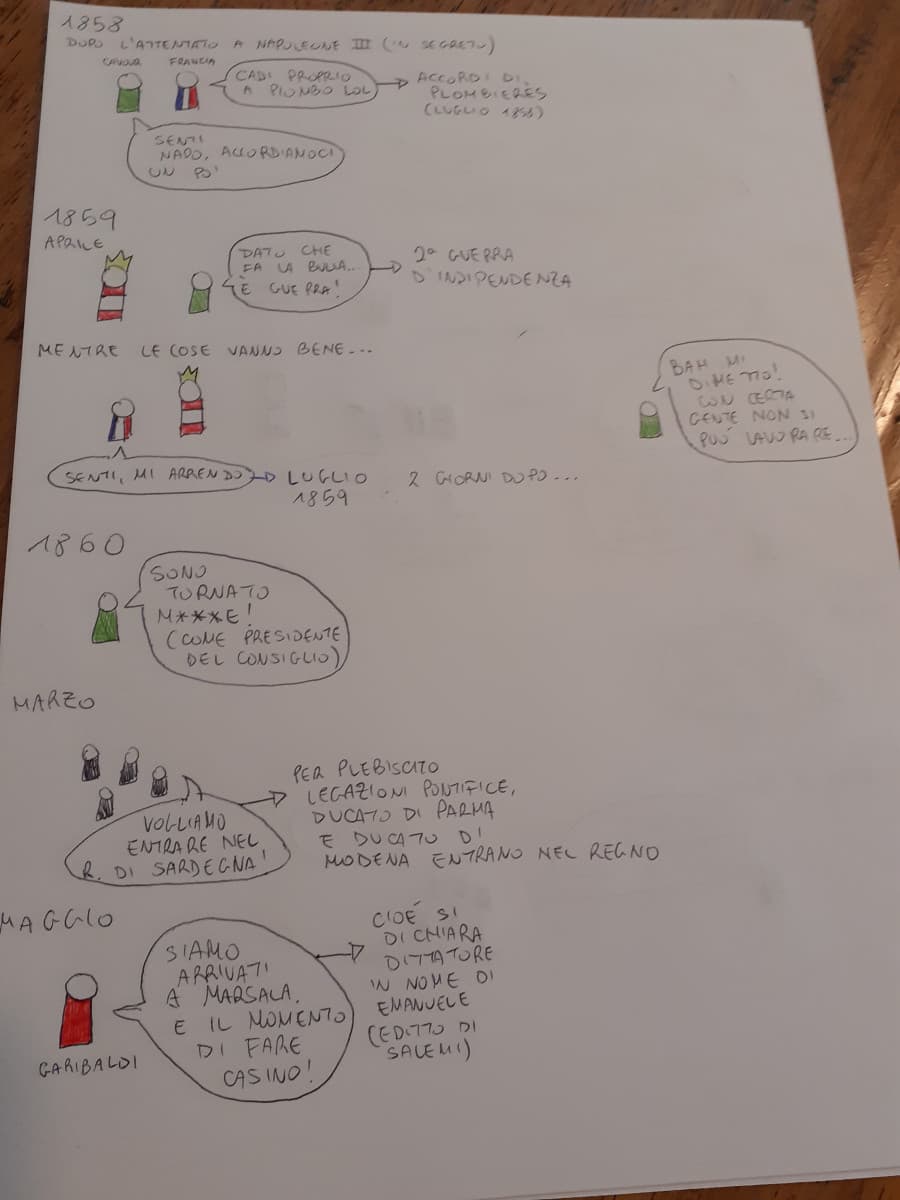 1858
DOPO L'ATTENTATO A NAPOLEONE III (IN SEGRETO)
CAVOUR
FRANCIA
CADI PROPRIO
A PIOMBO LOL
ACCORDI DI
PLOMBIERÈS
(LUGLIO 1858)
SENTI
NAPO, ACCORDIAMOCI
UN PO'
1859
APRILE
DATO CHE
FA LA BULLA..
È GUERRA!
2ª GUERRA
D'INDIPENDENZA
MENTRE LE COSE VANNO BENE...
SENTI, MI ARRENDO
LUGLIO
1859
2 GIORNI DOPO...
BAH MI
DIMETTO!
CON CERTA
GENTE NON SI
PUÓ LAVORARE...
1860
SONO
TORNATO
M***E!
(COME PRESIDENTE
DEL CONSIGLIO)
MARZO
VOGLIAMO
ENTRARE NEL
R. DI SARDEGNA!
PER PLEBISCITO
LEGAZIONI PONTIFICE,
DUCATO DI PARMA
E DUCATO DI
MODENA ENTRANO NEL REGNO
MAGGIO
GARIBALDI
SIAMO
ARRIVATI
A MARSALA.
E IL MOMENTO
DI FARE
CASINO!
CIOÉ SI
DICHIARA
DITTATORE
IN NOME DI
EMANUELE
(EDITTO DI
SALEMI)